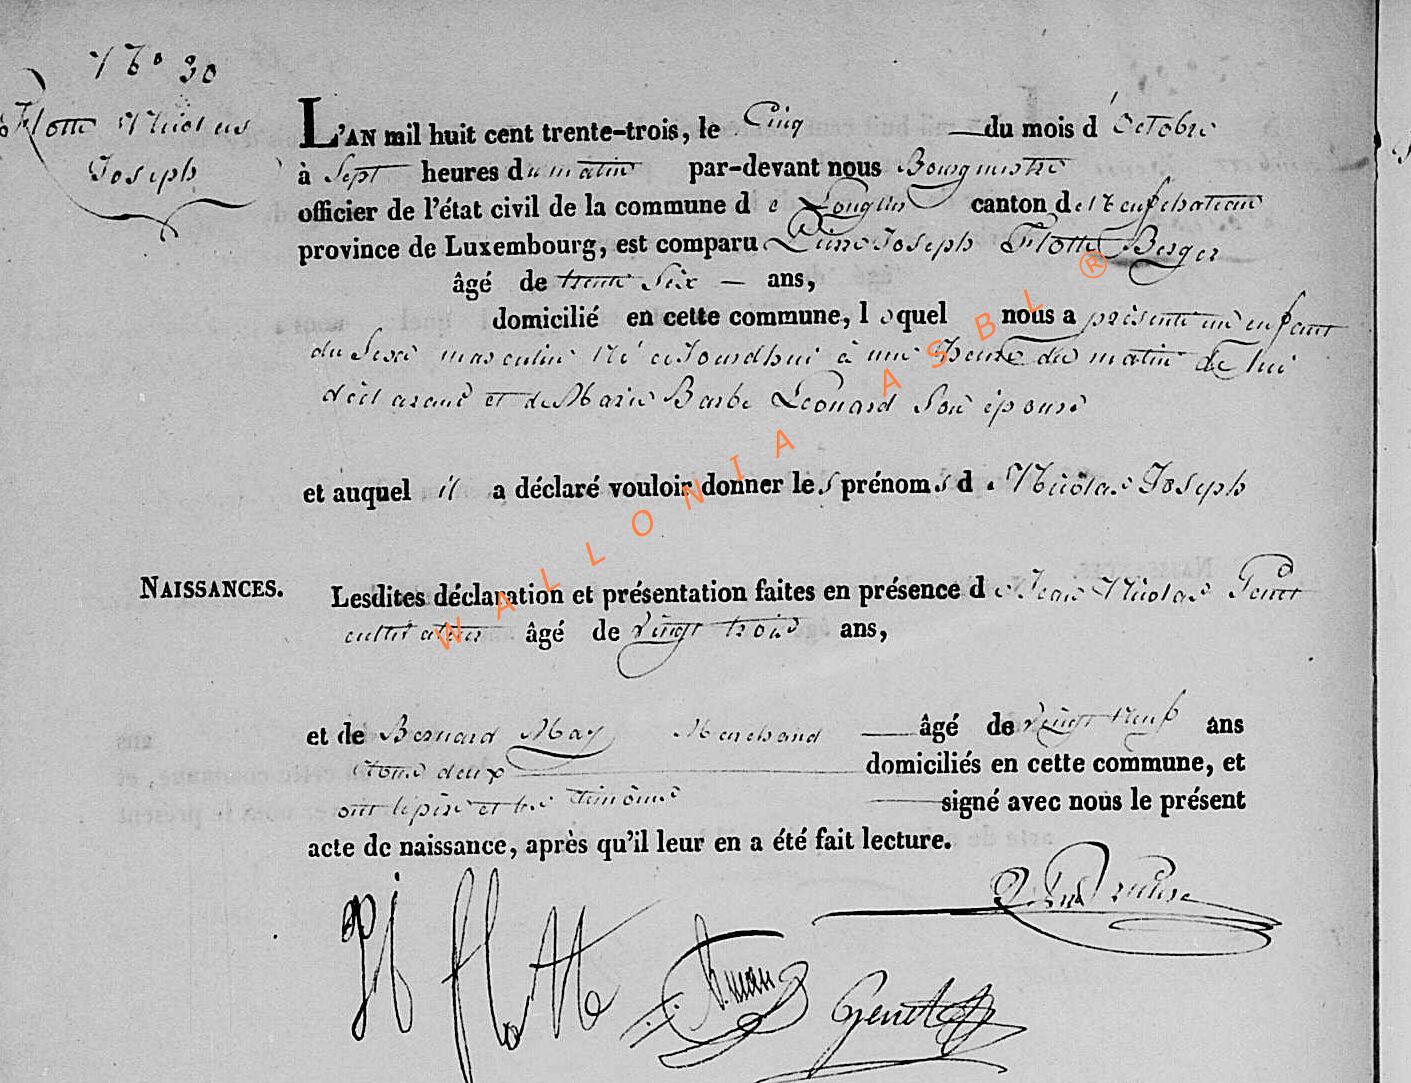 N° 30
Flotte Nicolas
Joseph
L'AN mil huit cent trente-trois, le Cinq du mois d'Octobre
à Sept heures du matin par-devant nous Bourgmestre
officier de l'état civil de la commune de Longlier canton de Neufchateau
province de Luxembourg, est comparu Pierre Joseph Flotte Berger
âgé de trente Six ans,
domicilié en cette commune, lequel nous a présenté un enfant
du Sexe masculin Né cejourdhui à une heure du matin de lui
déclarant et de Marie Barbe Léonard Son épouse
et auquel il a déclaré vouloir donner les prénoms de Nicolas Joseph
NAISSANCES.
Lesdites déclaration et présentation faites en présence de Jean Nicolas Genet
cultivateur âgé de vingt trois ans,
et de Bernard May Marchand âgé de vingt neuf ans
tous deux domiciliés en cette commune, et
ont le père et les témoins signé avec nous le présent
acte de naissance, après qu'il leur en a été fait lecture.
PJ flotte
Genet
WALLONIA ASBL ®